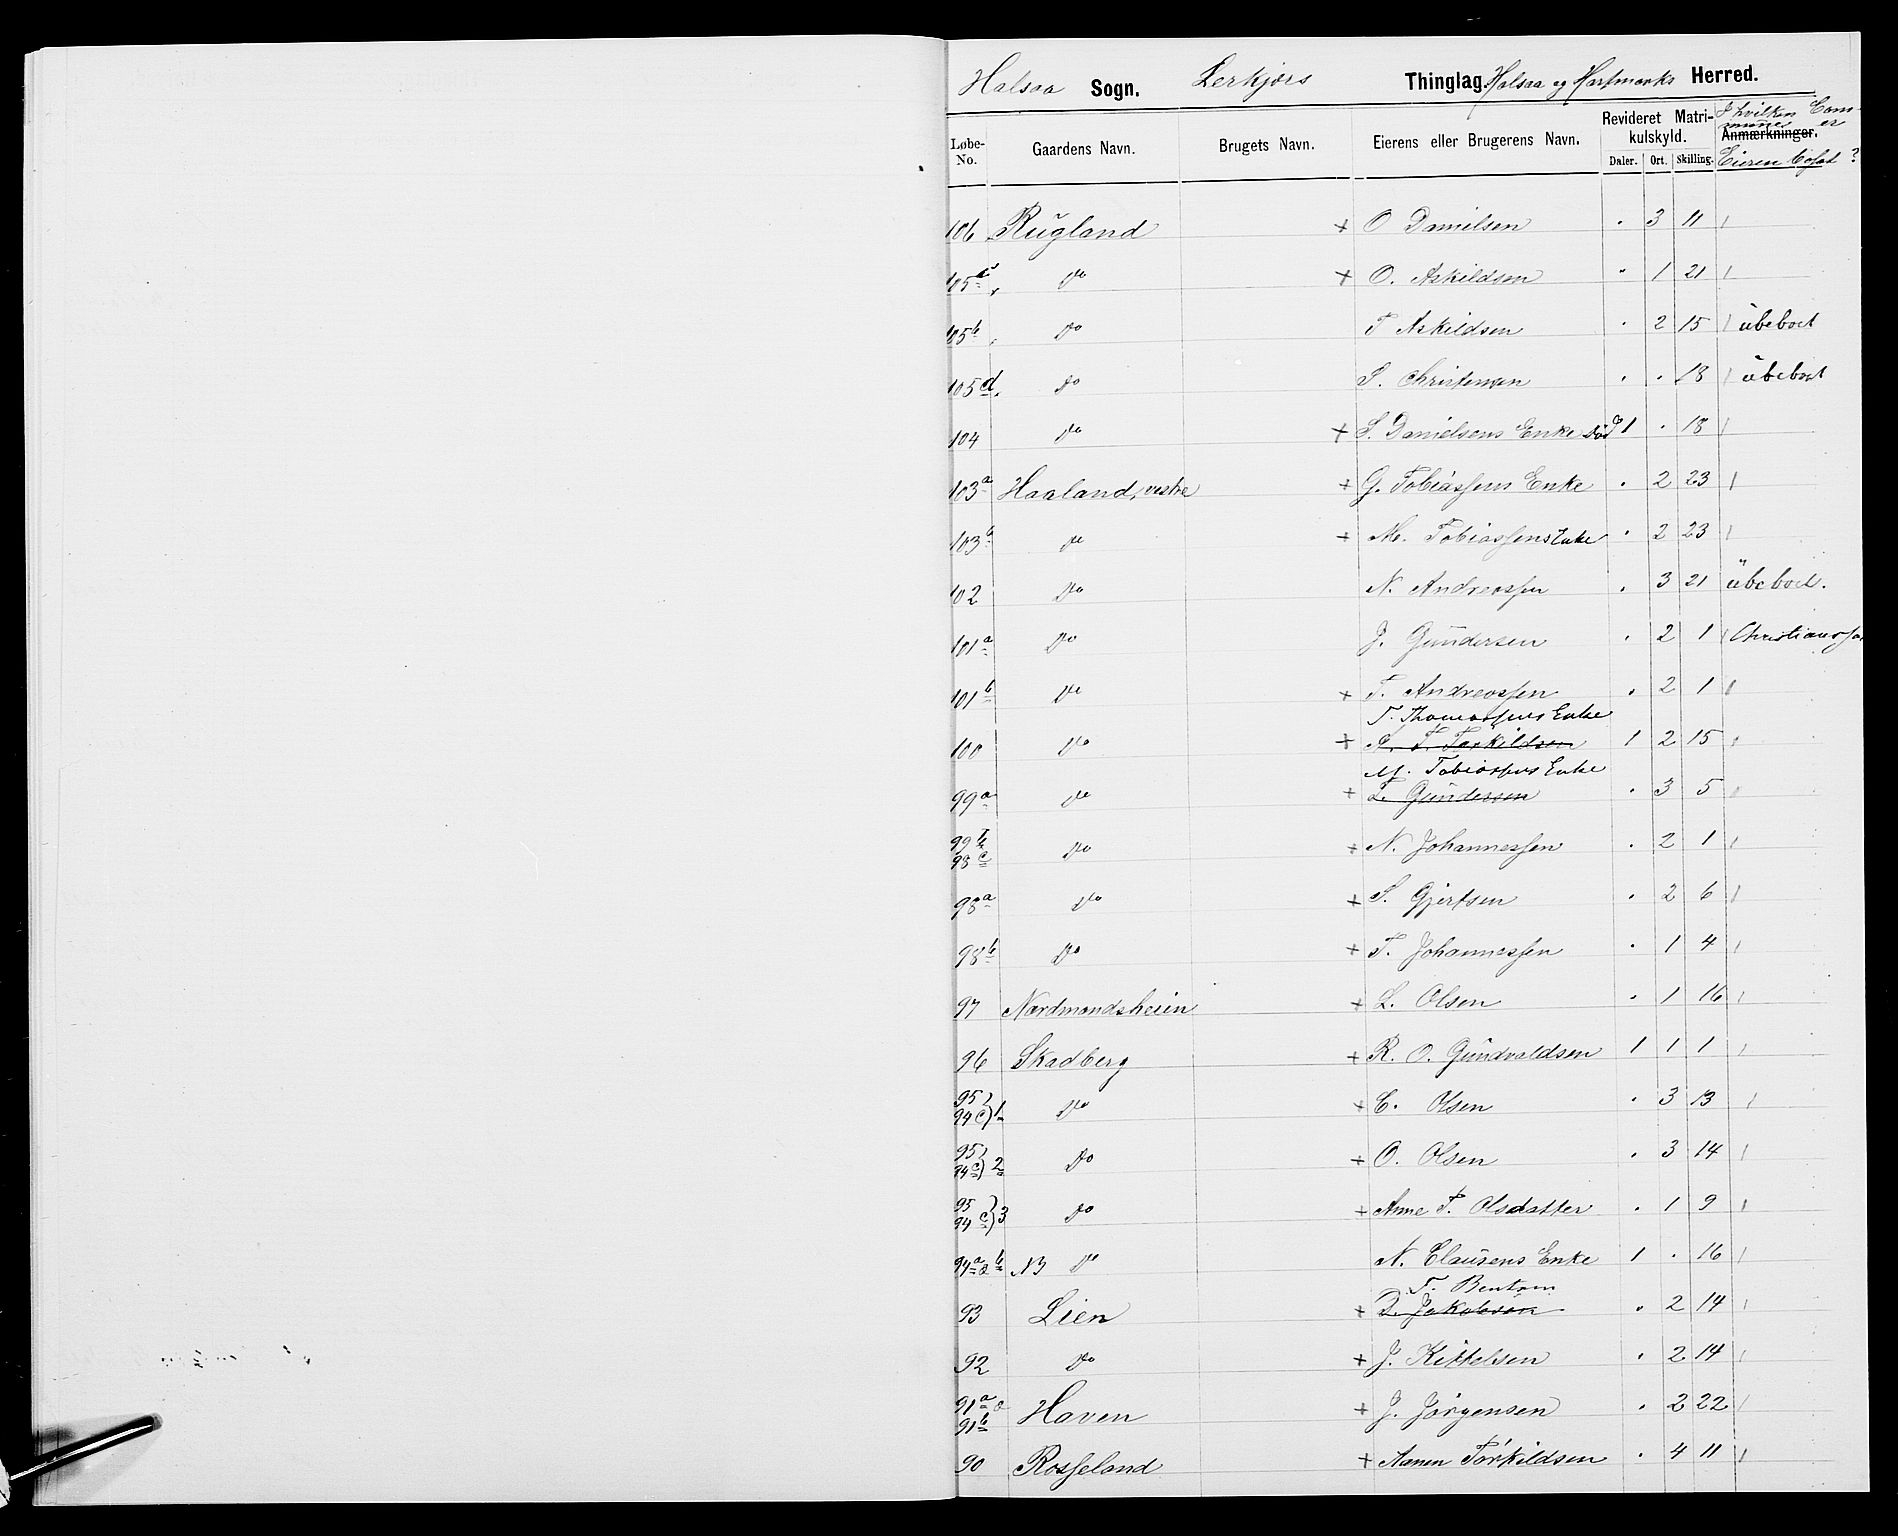 Halsaa Sogn. Lerkjærs Thinglag Halsaa og Hartmarks Herred.
Løbe-No. Gaardens Navn. Brugets Navn. Eierens eller Brugerens Navn. Revideret Matrikulskyld. Daler. Ort. Skilling. Anmærkninger. I hvilken Commune er Eieren bosat?
106 Rugland + O Danielsen . 3 11
105 Do + O. Askildsen " 1 21
105b Do T Askildsen . 2 15 ubeboet
105d Do S. Christensen . . 18 ubeboet
104 Do + S. Danielsens Enke død 1 . 18
103a Haaland, vestre + G. Tobiassens Enke . 2 23
103b Do + M. Tobiassens Enke . 2 23
102 Do N. Andreassen . 3 21 ubeboet.
101a Do J. Gundersen . 2 1
101b Do + T. Andreassen . 2 1
T. Thomassens Enke
100 Do + A. T. Torkildsen 1 2 15
M. Tobiassens Enke
99a Do + T. Gundersen . 3 5
99b 98c Do + N. Johannessen . 2 1
98a Do + S. Gjertsen . 2 6
98b Do + T. Johannessen . 1 4
97 Nordmandsheien + L. Olsen . 1 16
96 Skadberg + R. O. Gundvaldsen 1 1 1
95, 94c) 1 Do + C. Olsen . 3 13
95, 94c) 2 Do + O. Olsen . 3 14
95 94c) 3 Do + Anne T. Olsdatter . 1 9
94a & b NB Do N. Clausens Enke 1 . 16
T. Bentsen
93 Lien + D. Jakobsen . 2 14
92 Do + J. Kittelsen . 2 14
91a & 91b Haven + J. Jørgensen . 2 22
90 Rosseland + Aanen Torkildsen . 4 11